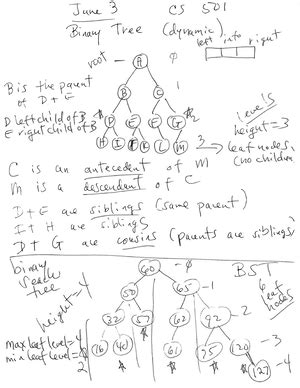 June 3 CS 501
Binary Tree (dynamic)
left info right
root
A 0
B is the parent of D + E
B C 1
D left child of B
E right child of B
D E F G 2
H I K L M 3
levels
height = 3
leaf nodes
(no children)
C is an antecedent of M
M is a descendant of C
D + E are siblings (same parent)
I + H are siblings
D + G are cousins (parents are siblings)
binary search tree
BST
60 - 0
50 65 - 1
22 57 62 92 - 2
16 61 75 120 - 3
127 - 4
height = 4
6 leaf nodes
max leaf level = 4
min leaf level = 2